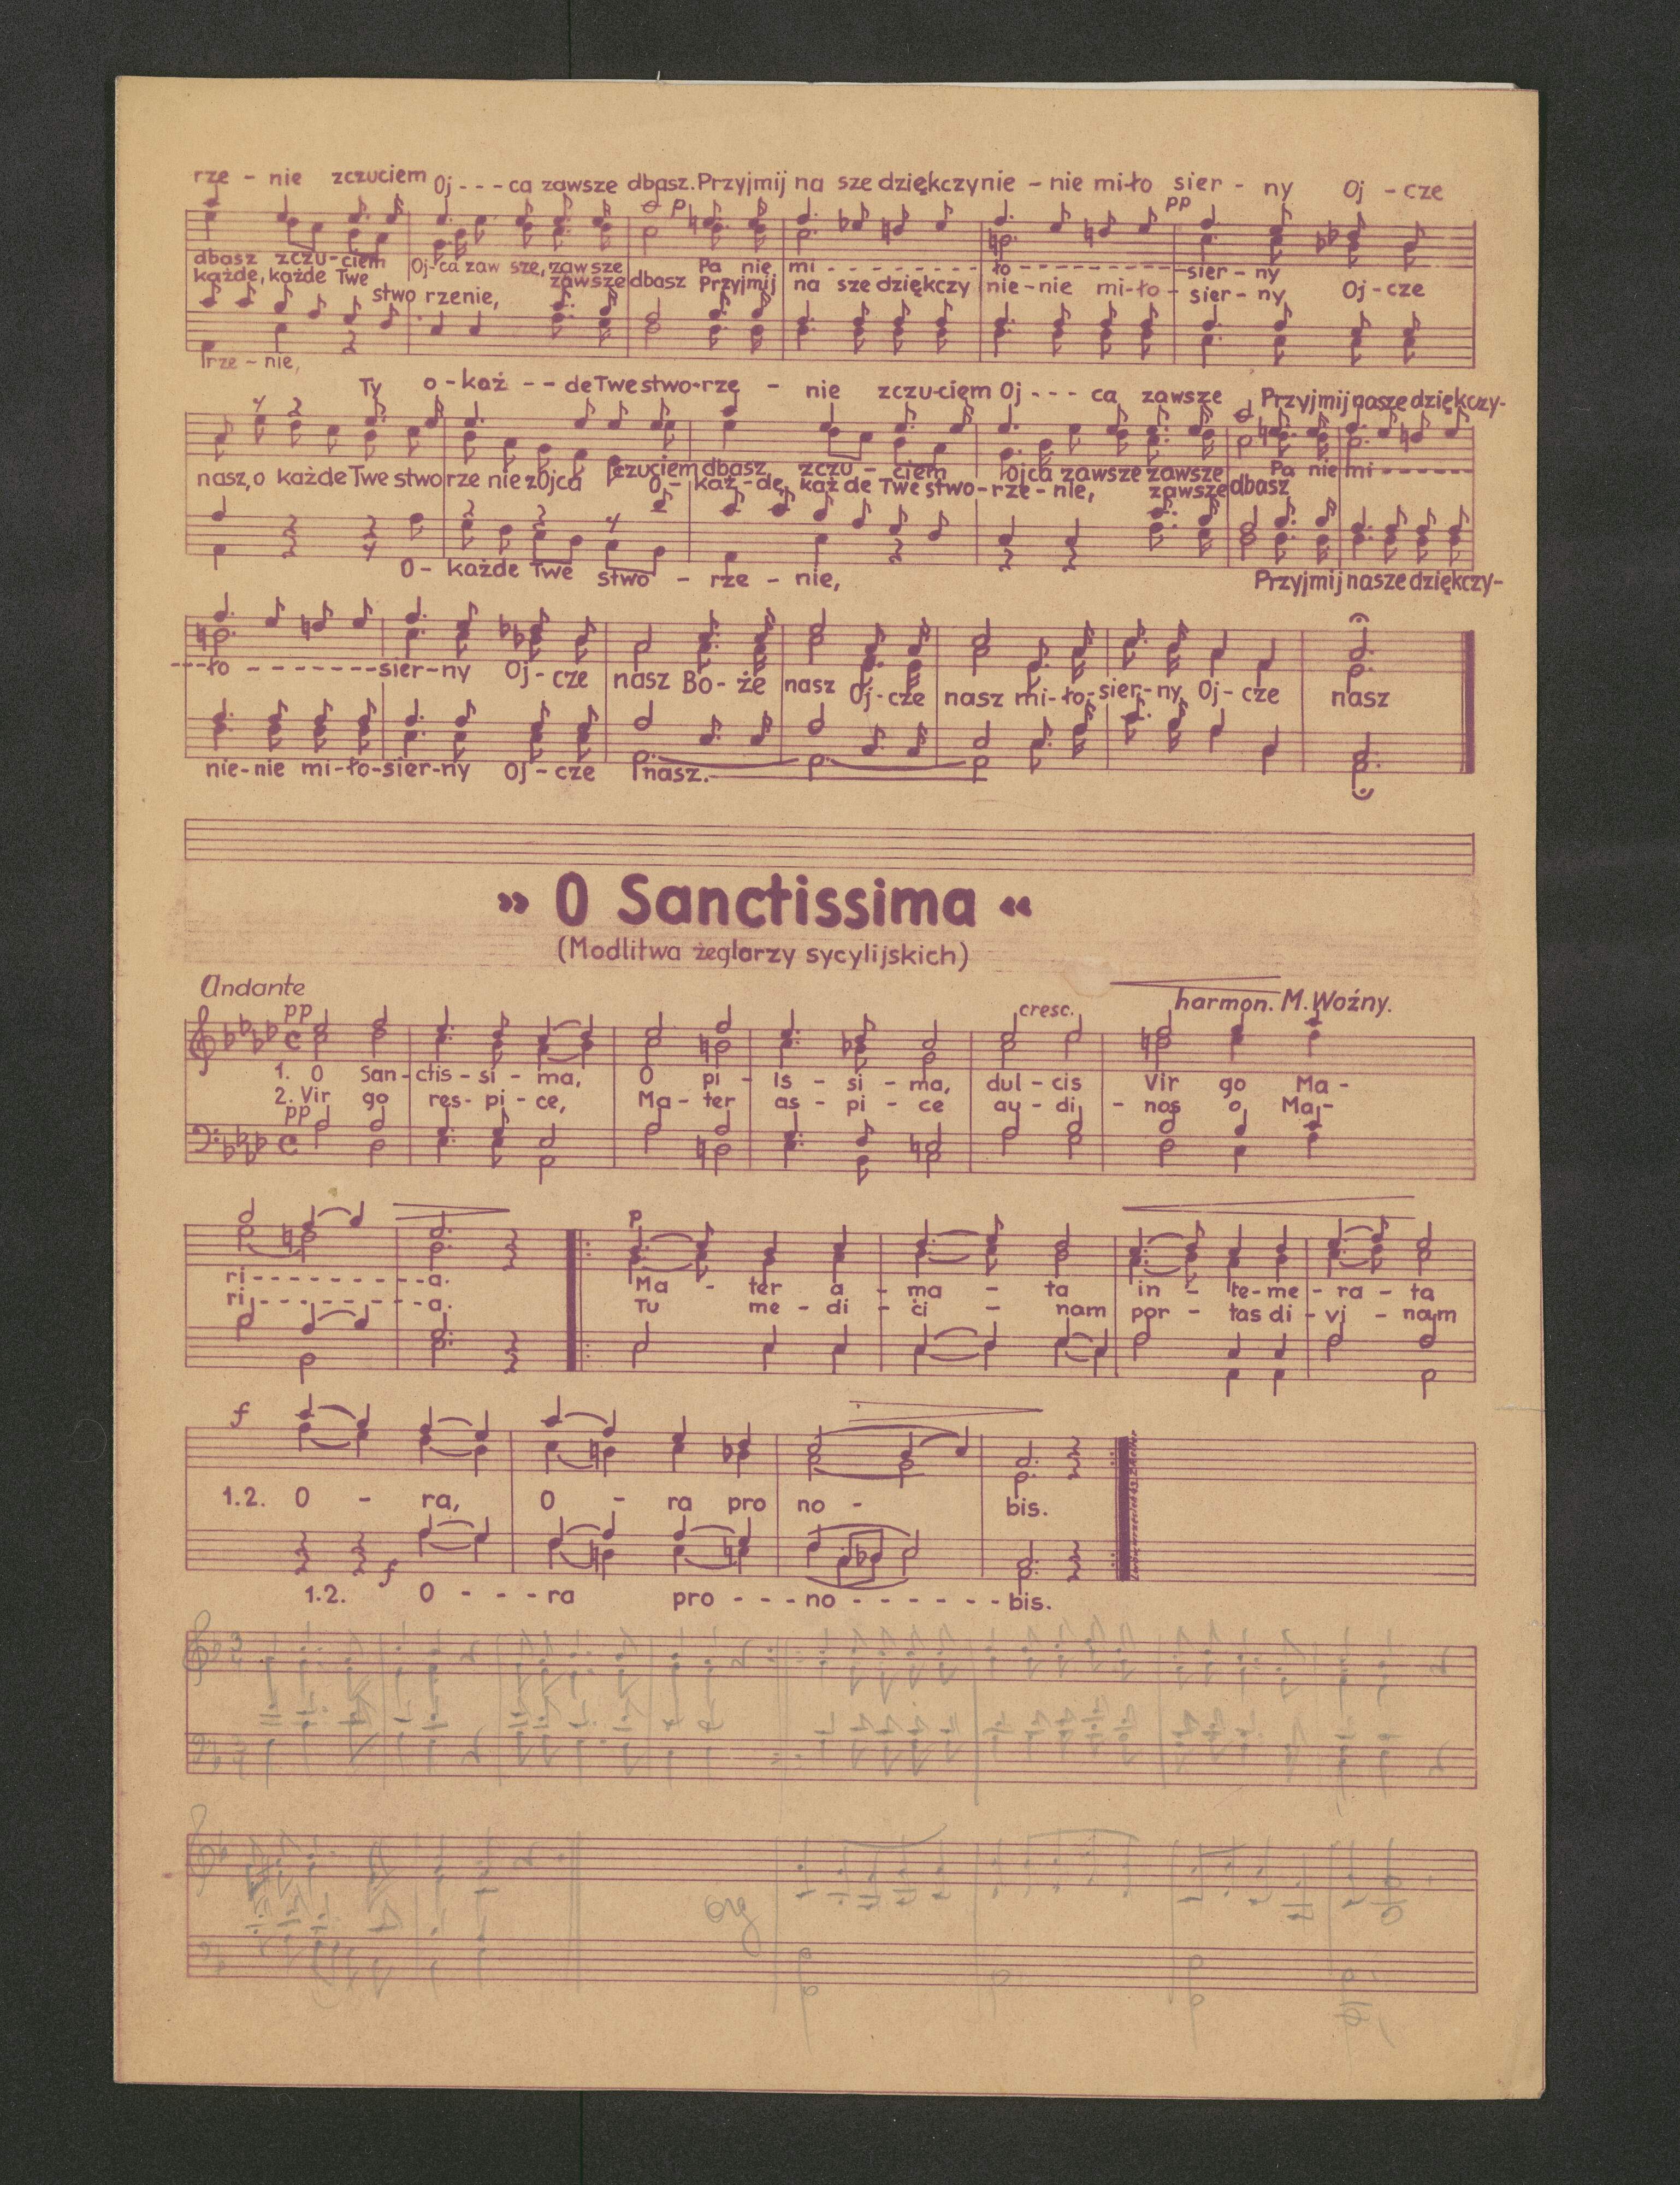 rze - nie zczuciem Oj - - - ca zawsze dbasz. Przyjmij na sze dziękczynie - nie mi-ło sier - ny Oj - cze
p pp
dbasz zczu-ciem Oj-ca zaw sze, zawsze Pa nie mi - - - - - - - - - ło - - - - - - - - - - sier - ny
każde, każde Twe stwo rzenie, zawsze dbasz Przyjmij na sze dziękczy nie-nie mi-ło - sier - ny Oj - cze
rze - nie,
Ty o - każ - - de Twe stwo-rze - nie zczu-ciem Oj - - - ca zawsze Przyjmij nasze dziękczy-
nasz, o każde Twe stwo rze nie z Ojca czuciem dbasz, zczu - ciem Ojca zawsze zawsze Pa nie mi - - - - - -
O - każ - de, każ de Twe stwo - rze - nie, zawsze dbasz
O - każde Twe stwo - rze - nie, Przyjmij nasze dziękczy-
- - - ło - - - - - - - sier-ny Oj - cze nasz Bo - że nasz Oj - cze nasz mi-ło-sier-ny Oj - cze nasz
nie-nie mi-ło-sier-ny Oj - cze nasz.
» O Sanctissima «
(Modlitwa żeglarzy sycylijskich)
Andante
harmon. M. Woźny.
pp cresc.
1. O San-ctis - si - ma, O pi - is - si - ma, dul - cis Vir go Ma -
2. Vir go res - pi - ce, Ma - ter as - pi - ce au - di - nos o Ma -
pp
p
ri - - - - - - - - - a. Ma - ter a - ma - ta in - te-me - ra - ta
ri - - - - - - - - - a. Tu me - di - ci - nam por - tas di - vi - nam
f
1.2. O - ra, O - ra pro no - bis.
f
1.2. O - - - ra pro - - - no - - - - - - bis.